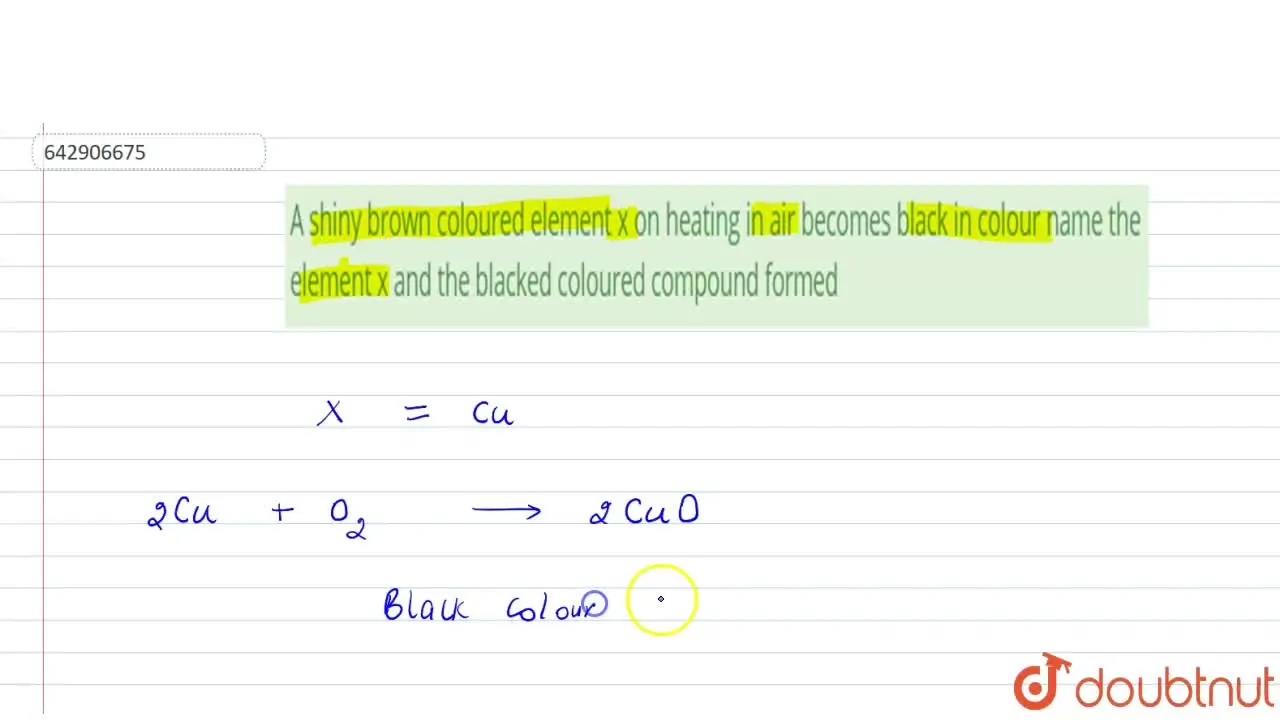 642906675
A shiny brown coloured element x on heating in air becomes black in colour name the
element x and the blacked coloured compound formed
X = Cu
2Cu + O2 → 2CuO
Black Colour
doubtnut